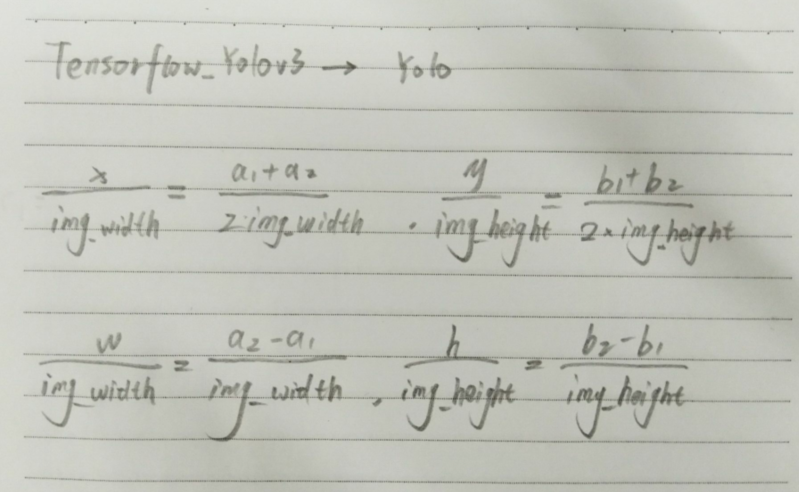 Tensorflow_Yolov3 → Yolo
x/img_width = a₁+a₂/2·img_width , y/img_height = b₁+b₂/2×img_height
w/img_width = a₂-a₁/img_width , h/img_height = b₂-b₁/img_height